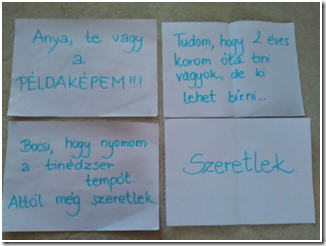 Anya, te vagy
a
PÉLDAKÉPEM!!!
Tudom, hogy 2 éves
korom óta tini
vagyok, de ki
lehet bírni...
Bocsi, hogy nyomom
a tinédzser
tempót.
Attól még szeretlek.
Szeretlek.